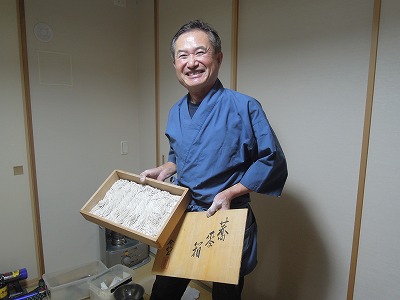 蕎麦箱